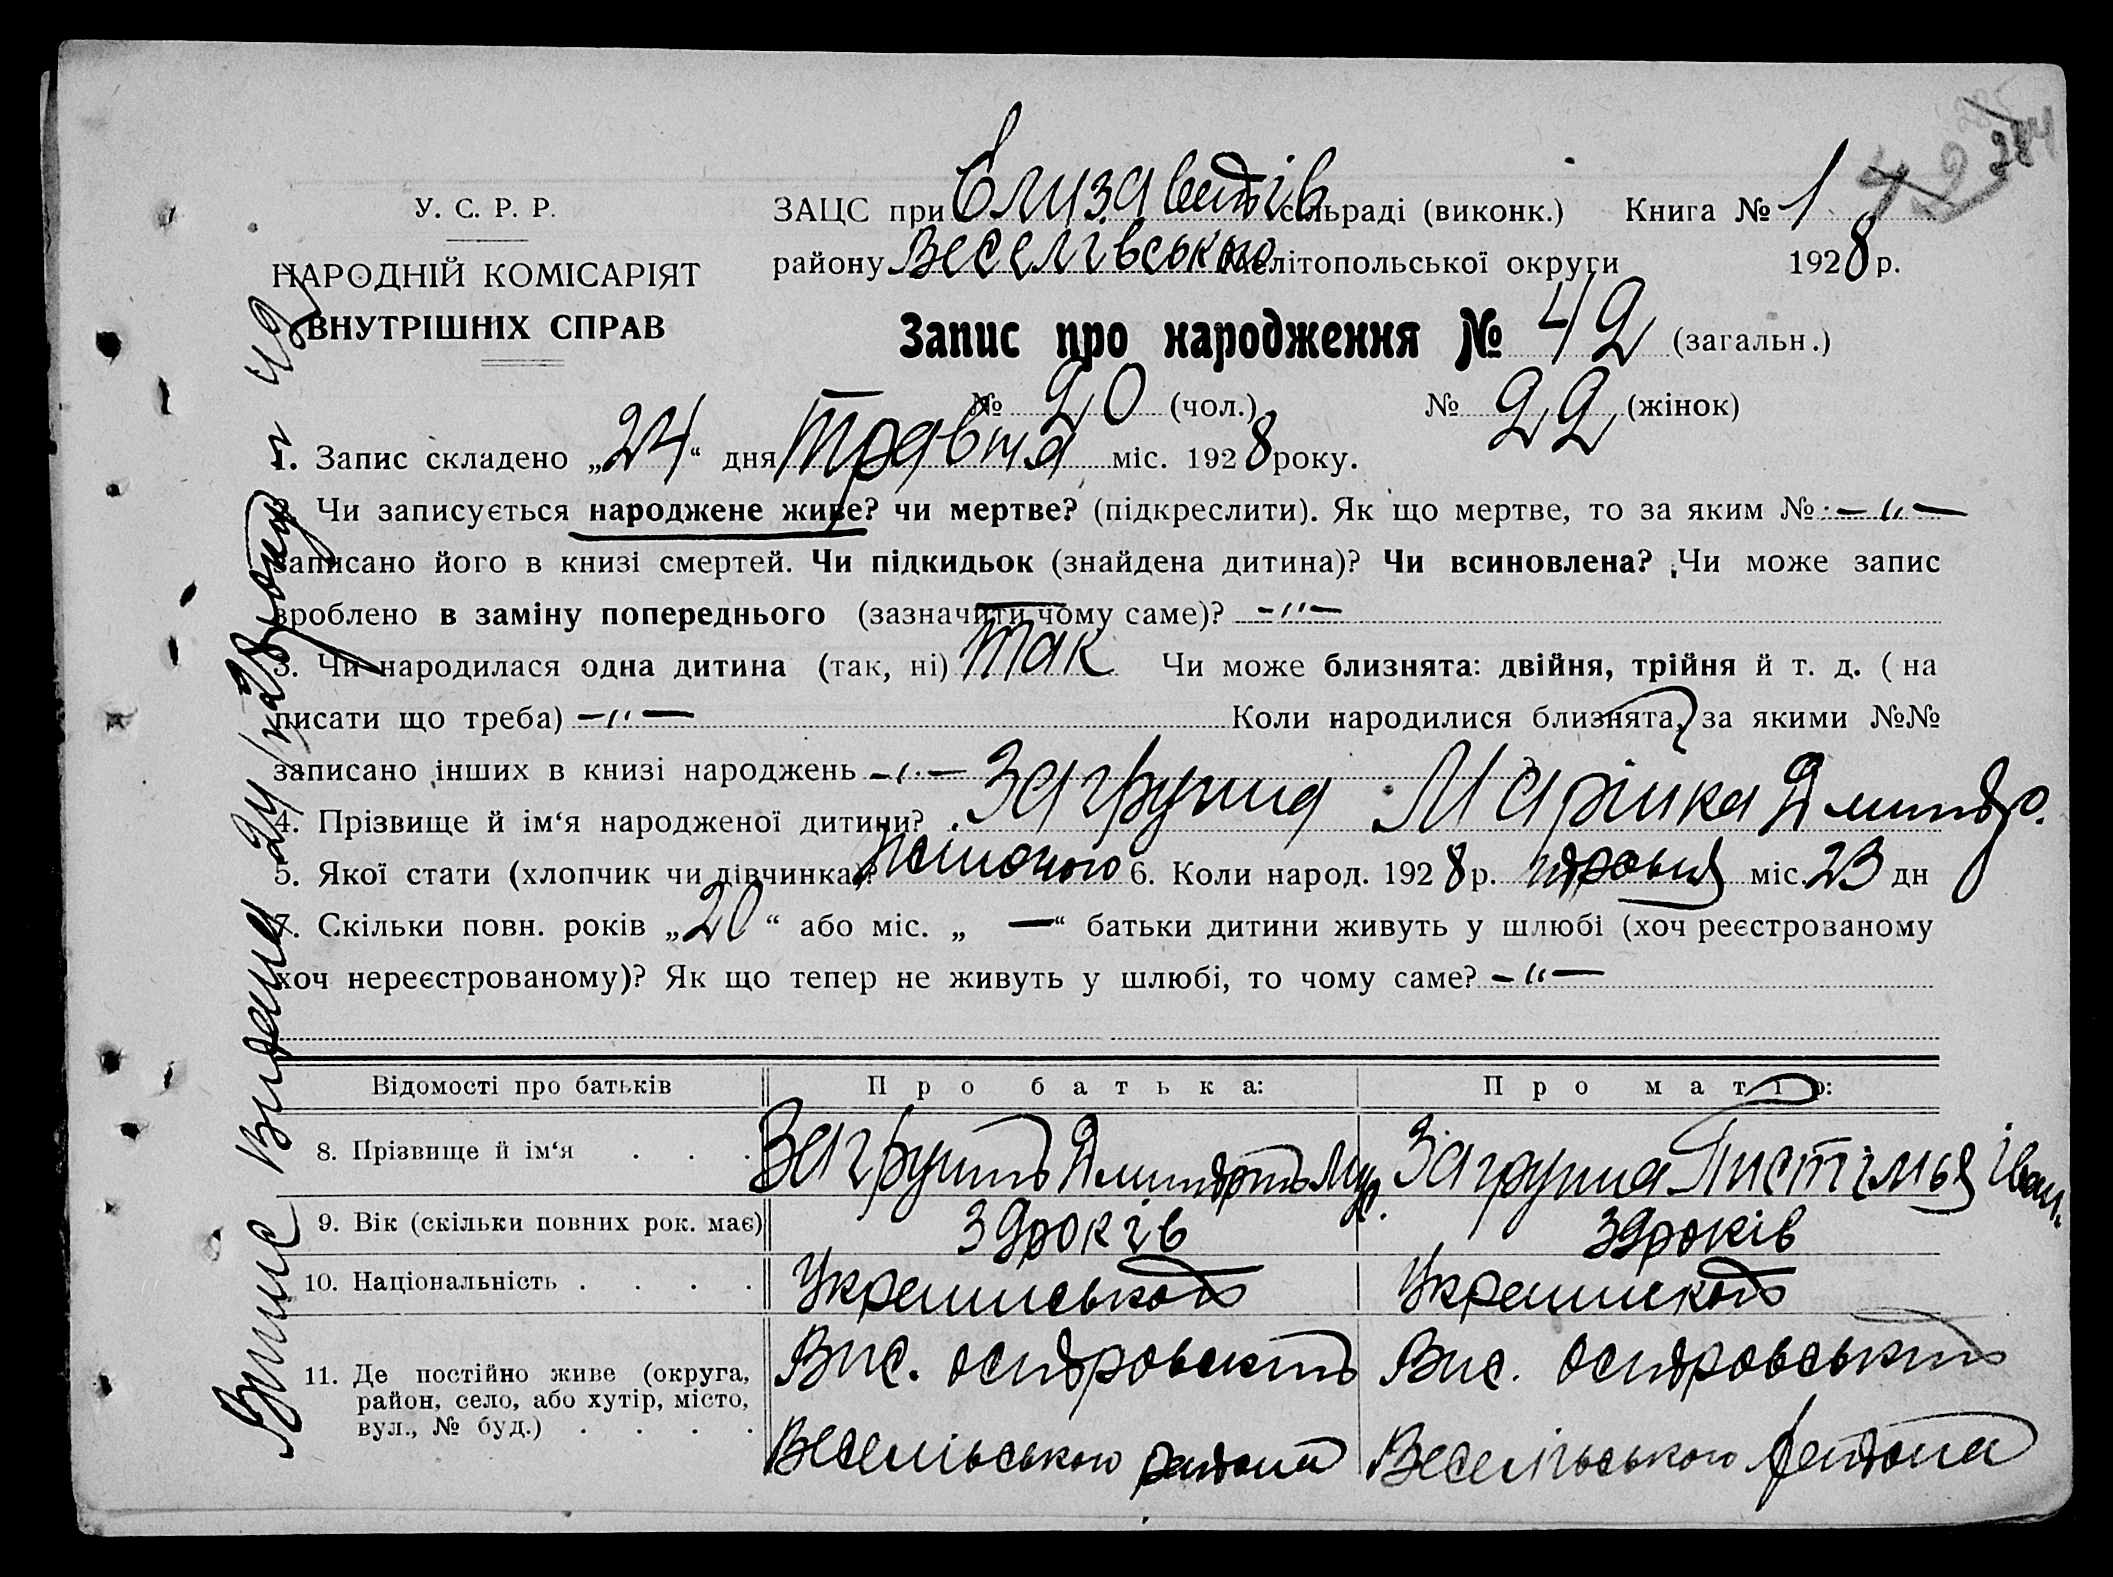 284
У. С. Р. Р.
НАРОДНІЙ КОМІСАРІЯТ
ВНУТРІШНІХ СПРАВ
ЗАЦС при Єлизаветів сільраді (виконк.) Книга № 1 42
району Веселівського Мелітопольської округи 1928 р.
Запис про народження № 42 (загальн.)
№ 20 (чол.) № 22 (жінок)
1. Запис складено „24“ дня Травня міс. 1928 року.
2. Чи записується народжене живе? чи мертве? (підкреслити). Як що мертве, то за яким № -"-
записано його в книзі смертей. Чи підкидьок (знайдена дитина)? Чи всиновлена? Чи може запис
зроблено в заміну попереднього (зазначити чому саме)? -"-
3. Чи народилася одна дитина (так, ні) Так Чи може близнята: двійня, трійня й т. д. ( на
писати що треба) -"- Коли народилися близнята, за якими №№
записано інших в книзі народжень -"-
4. Прізвище й ім‘я народженої дитини? Загруна Марінка Дмитро.
5. Якої стати (хлопчик чи дівчинка)? Жіночого 6. Коли народ. 1928 р. травня міс. 23 дн
7. Скільки повн. років „20“ або міс. „ —“ батьки дитини живуть у шлюбі (хоч реєстрованому
хоч нереєстрованому)? Як що тепер не живуть у шлюбі, то чому саме? -"-
Відомості про батьків Про батька: Про матір:
8. Прізвище й ім‘я . . . Дмитро Загруна Іван.
9. Вік (скільки повних рок. має) 39 років 39 років
10. Національність . . . . Українською Українскою
11. Де постійно живе (округа, район, село, або хутір, місто, вул., № буд.) . . . . Вис. Островський Вис. Островський
Веселівського района Веселівського района
Випис видано 24/V 28 року № 42